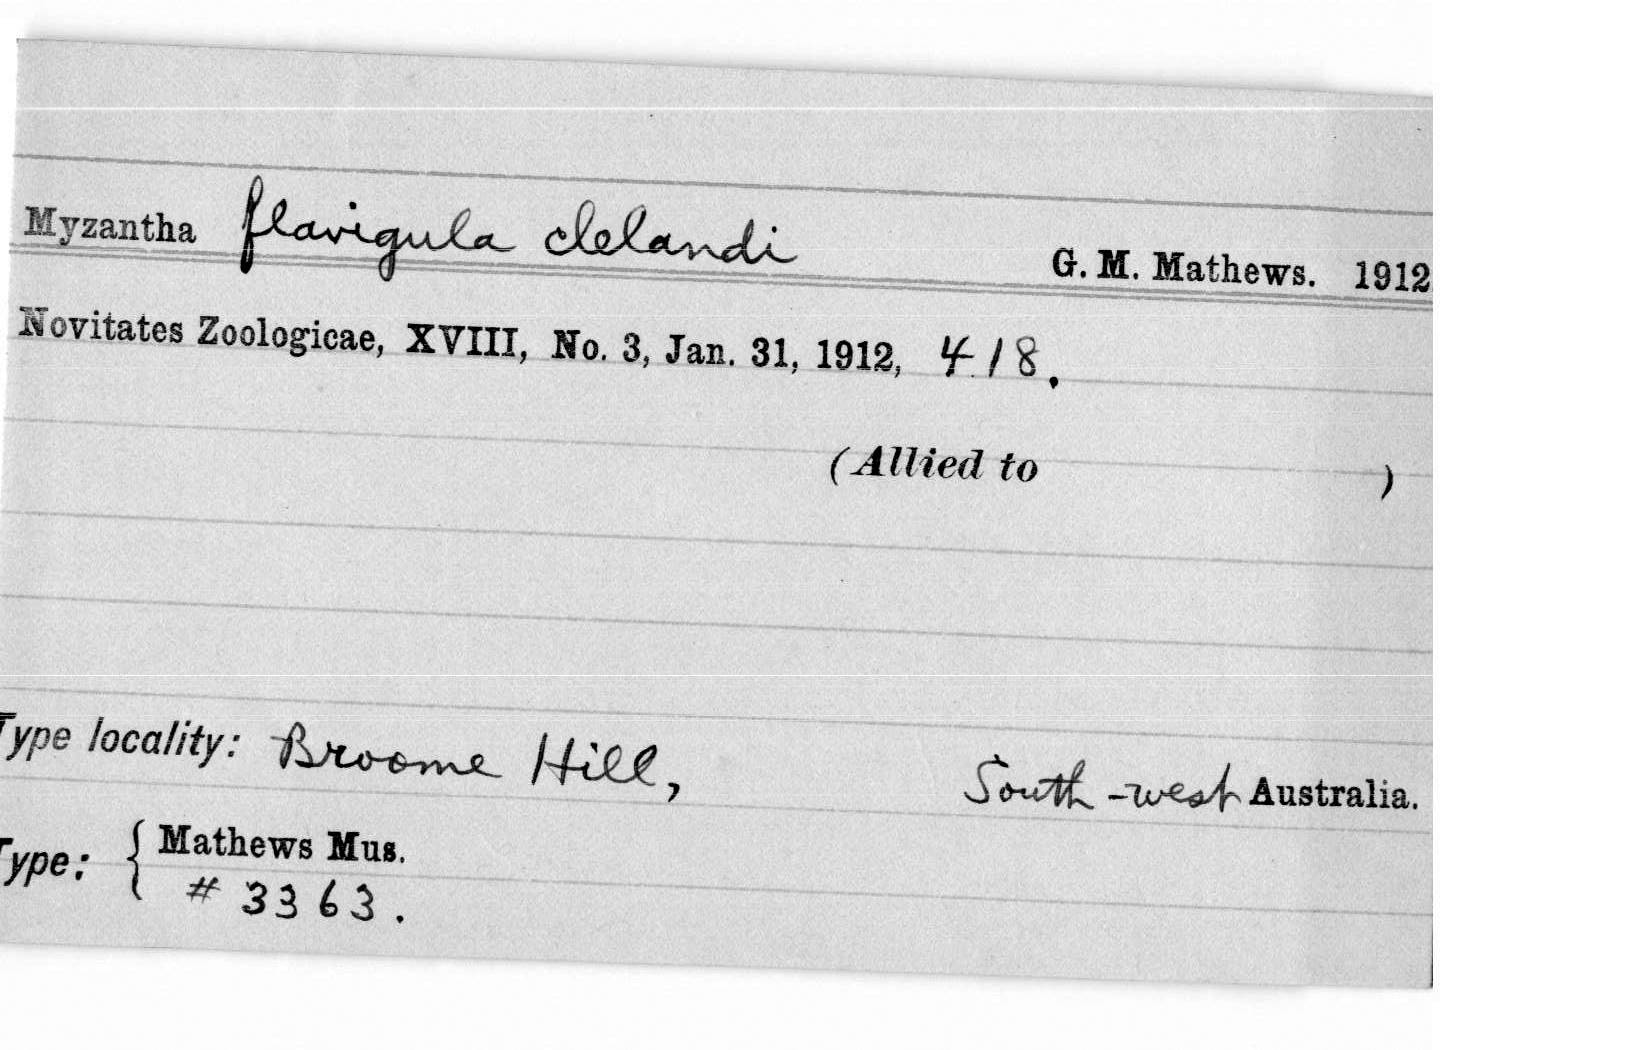 Myzantha flavigula clelandi G. M. Mathews. 1912
Novitates Zoologicae, XVIII, No. 3, Jan. 31, 1912, 418.
(Allied to )
Type locality: Broome Hill, South-west Australia.
Type: { Mathews Mus.
# 3363.